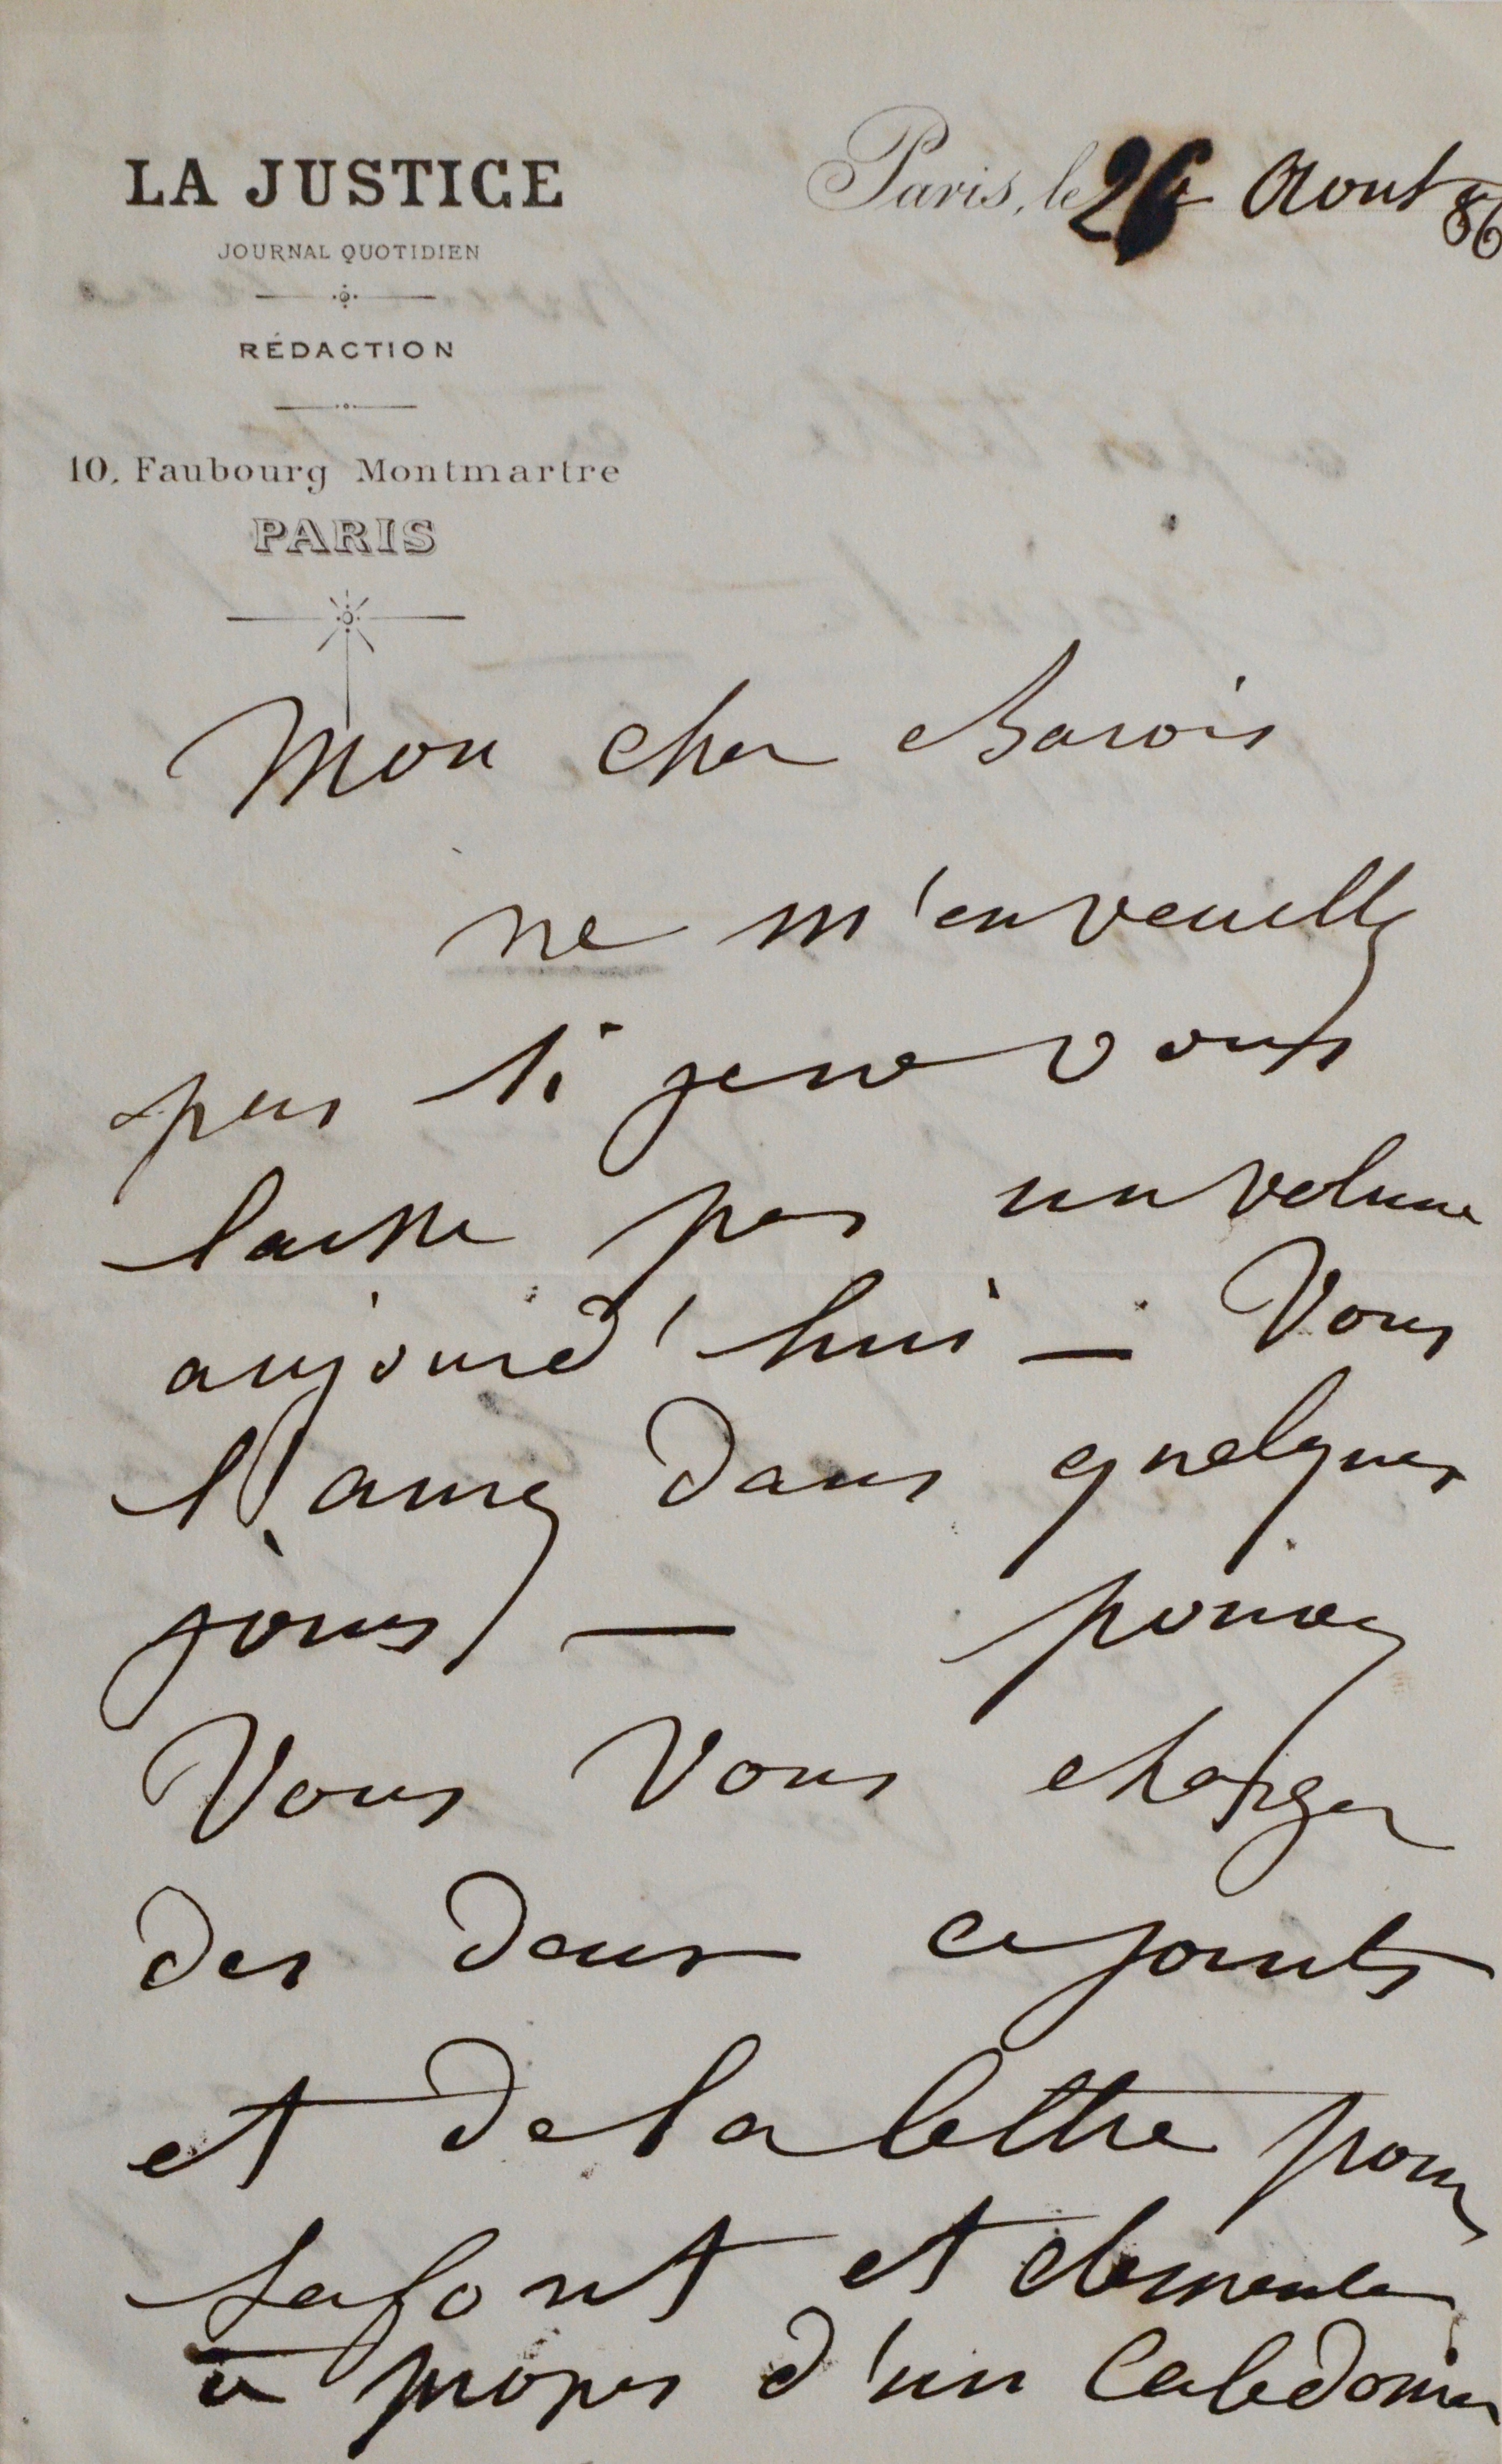 LA JUSTICE
JOURNAL QUOTIDIEN
RÉDACTION
10, Faubourg Montmartre
PARIS
Paris, le 26 Aout 86
Mon cher Barois
ne m'en veuillez
pas si je ne vous
laisse pas un volume
aujourd'hui — Vous
l'aurez dans quelques
jours — pouvez
Vous Vous charger
des deux ci joints
et de la lettre pour
Lafont et Clemenceau
à propos d'un Caledonien